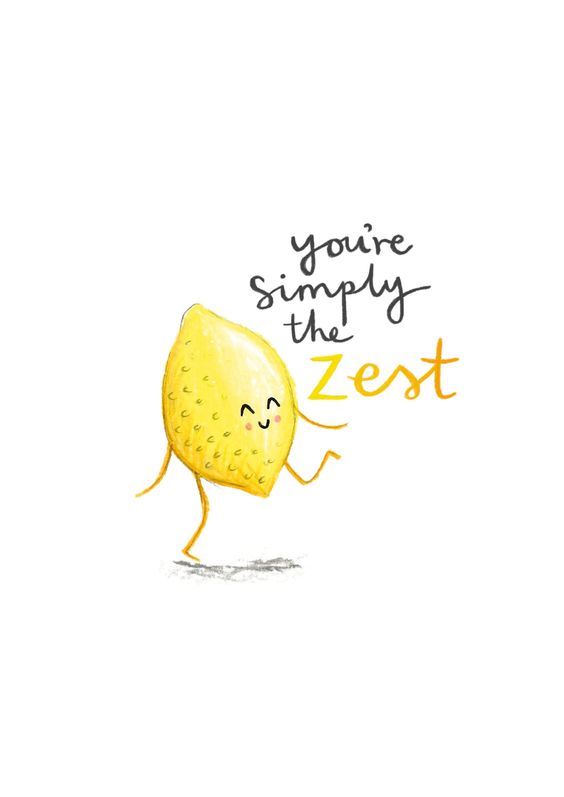 you're
simply
the
zest